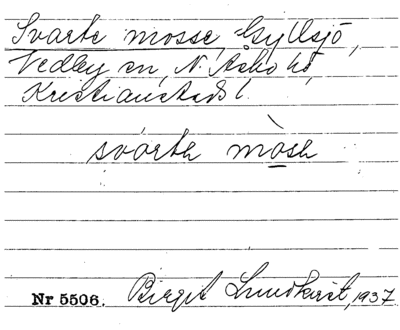 Svarte mosse, Gyllsjö,
Vedby sn, N. Åsbo hd,
Kristianstads l.
svarte mose
Nr 5506. Birgit Lundkvist, 1937